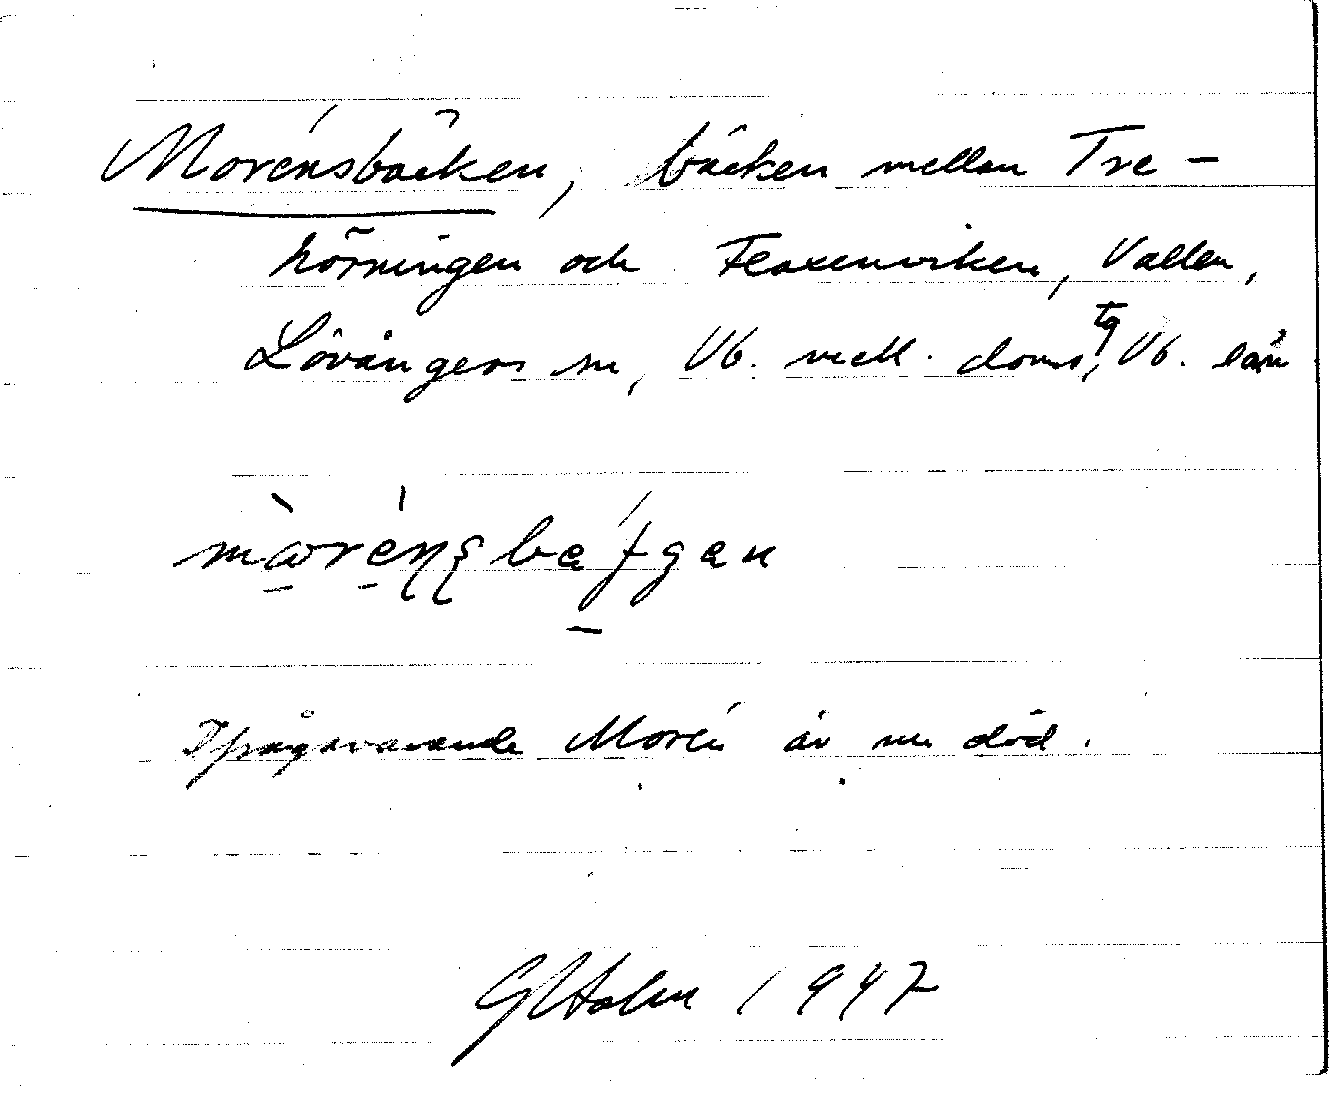 Morénsbäcken, bäcken mellan Tre-
hörningen och Flaxenviken, Vallen,
Lövångers sn, Vb. mell. doms
tg, Vb. län
Ifrågavarande Morén är nu död.
G Holm 1947